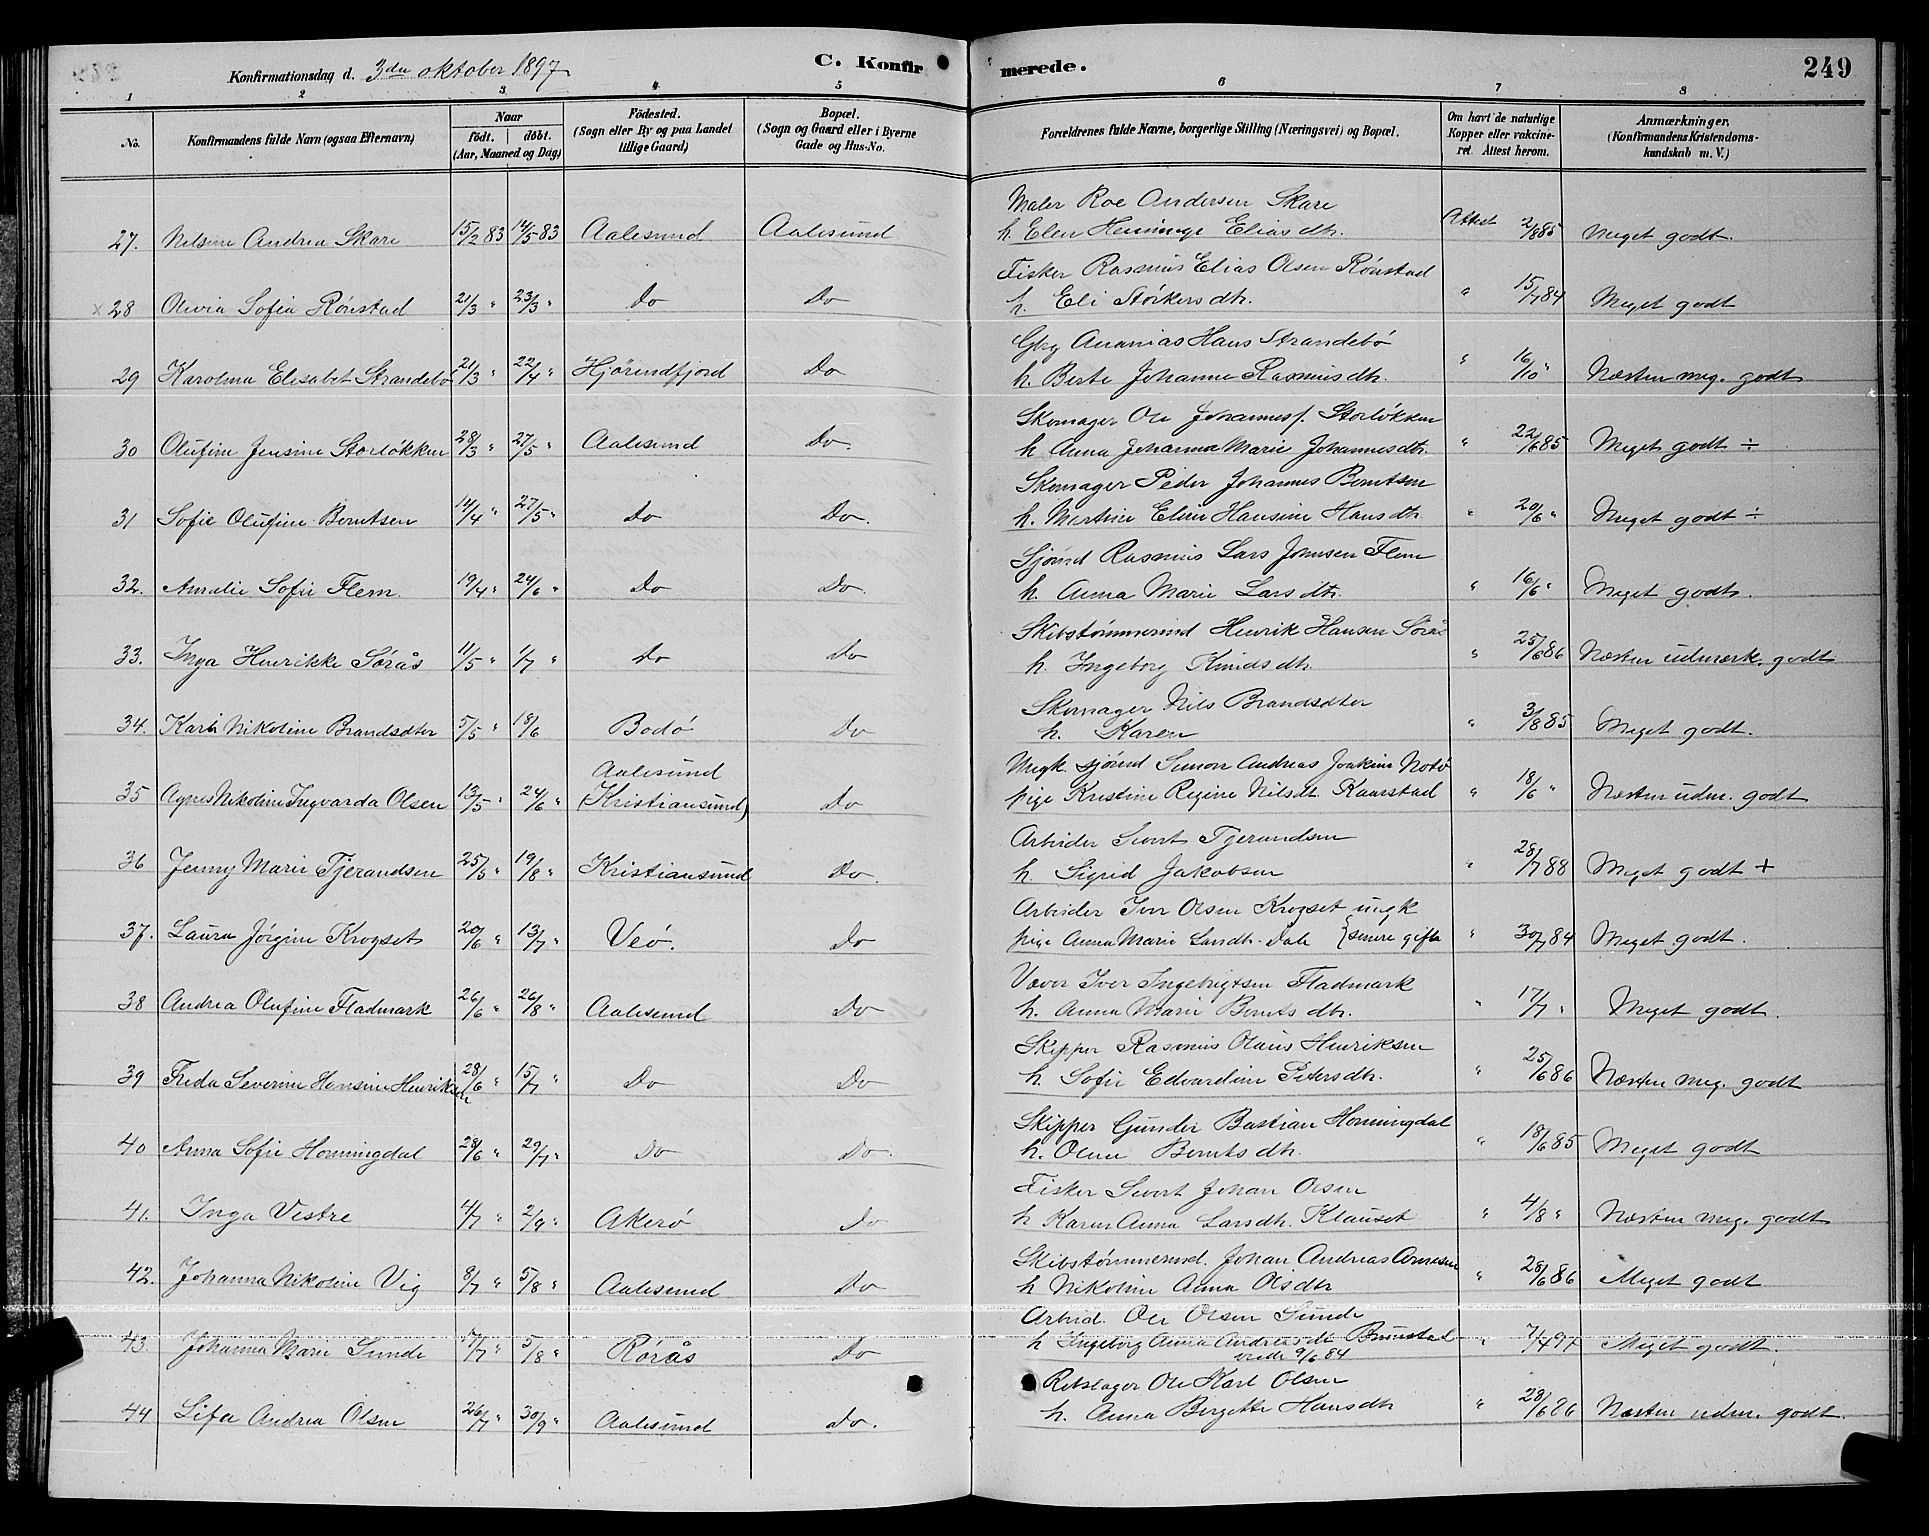 Konfirmationsdag d. 3die oktober 1897
C. Konfir
merede.
249
1 2 3 4 5 6 7 8
No.
Konfirmandens fulde Navn (ogsaa Efternavn)
Naar
født. | døbt.
(Aar, Maaned og Dag)
Födested.
(Sogn eller By og paa Landet
tillige Gaard)
Bopæl.
(Sogn og Gaard eller i Byerne
Gade og Hus-No.
Forældrenes fulde Navne, borgerlige Stilling (Næringsvei) og Bopæl.
Om havt de naturlige
Kopper eller vakcine-
ret. Attest herom.
Anmærkninger.
(Konfirmandens Kristendoms-
kundskab m. V.)
Maler Roe Andersen Skare
27. Nilsine Andrea Skare 15/2 83 14/5 83 Aalesund Aalesund h. Elen Henninge Eliasdtr. Attest 2/8 85 Meget godt.
Fisker Rasmus Elias Olsen Rönstad
x 28 Olivia Sofia Rönstad 21/3 " 23/3 " Do Do h. Eli Störkersdtr. " 15/7 84 Meget godt
Gbrg Ananias Hans Strandebö
29 Karolina Elisabet Strandebö 21/3 " 22/4 " Hjörendfjord Do h. Berte Johanne Rasmusdtr. " 16/10 " Næsten meg. godt
Skomager Ole Johannesf. Storløkken
30 Olufine Jensine Storløkken 28/3 " 27/5 " Aalesund Do. h Anna Johanna Marie Johannesdtr. " 22/6 85 Meget godt ÷
Skomager Peder Johannes Berntsen
31 Sofie Olufine Berntsen 14/4 " 27/5 " Do Do. h. Martine Eline Hansine Hansdtr " 20/6 " Meget godt ÷
Sjømd Rasmus Lars Johnsen Flem
32. Amalie Sofie Flem. 19/4 " 24/6 " Do Do. h. Anna Marie Larsdtr. " 16/6 " Meget godt.
Skibstømmermd Henrik Hansen Sörås
33. Inga Henrikke Sörås 11/5 " 1/7 " Do Do h. Ingeborg Knudsdtr. " 25/6 86 Næsten udmærk. godt
Skomager Nils Brandsdter
34. Karli Nikoline Brandsdter 5/5 " 18/6 Bodö Do h. Karen " 3/8 85 Meget godt.
Aalesund Ungk. sjömd Simon Andreas Joakim Notö
35 Agnes Nikoline Ingvarda Olsen 13/5 " 24/6 " (Kristiansund) Do pige Kristine Regine Nilsdt. Kaarstad " 18/6 " Næsten udm. godt
Arbeider Sivert Tjerandsen
36 Jenny Marie Tjerandsen 25/5 " 19/8 " Kristiansund Do. h. Sigrid Jakobsen " 28/7 88 Meget godt +
Arbeider Iver Olsen Krogset ungk
37. Laura Jörgine Krogset 20/6 " 13/7 " Veö. Do pige Anna Marie Larsdtr. Dale {senere gifte " 30/7 84 Meget godt.
Væver Iver Ingebrigtsen Fladmark
38 Andrea Olufine Fladmark 26/6 " 26/8 " Aalesund Do h. Anna Marie Berntsdtr. " 17/7 " Meget godt.
Skipper Rasmus Olaus Henriksen
39 Freda Severine Hansine Henriksen 28/6 " 15/7 " Do Do h. Sofie Edvardine Petersdtr. " 25/6 86 Næsten meg. godt
Skipper Gunder Bastian Honningdal
40 Anna Sofie Honningdal 28/6 " 29/7 " Do Do. h. Oline Berntsdtr. " 18/6 85 Meget godt
Fisker Sivert Johan Olsen
41. Inga Vestre 4/7 " 2/9 " Akerö Do h Karen Anna Larsdtr. Klauset " 4/8 " Næsten meg. godt
Skibstømmermd. Johan Andreas Arnesen
42. Johanna Nikoline Vig 8/7 " 5/8 " Aalesund Do h Nikoline Anna Olsdtr " 28/6 86 Meget godt
Arbeid. Ole Olsen Sunde
43. Johanna Marie Sunde 5/8 " Rörås Do h Ingeborg Anna Andreasdtr Brunstad " 7/4 97 Meget godt.
9/6 84
Rebslager Ole Karl Olsen
44 Lifa Andrea Olsen 26/7 " 30/9 " Aalesund Do. h. Anna Bergette Hansdtr " 28/6 86 Næsten udm. godt.